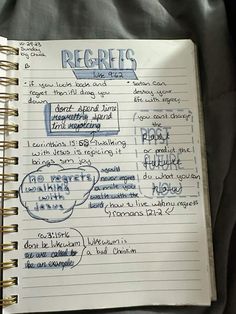 10-29-23
Sunday
REGRETS
Luke 9:62
• if you look back and
regret then it'll drag you
down
• satan can
destroy your
life with regret
dont spend time
regretting spend
time rejoicing
you cant change
the
PAST
or predict the
FUTURE
do what you can
NOW
1 corinthians 15:58 walking
with Jesus is rejoicing it
brings joy
no regrets
walking
with
Jesus
would
never regret
your
walk with the
lord
how to live without regrets
romans 12:1-2
rev 3:15-16
dont be lukewarm
we are called to
be an example
lukewarm is
a bad Christian